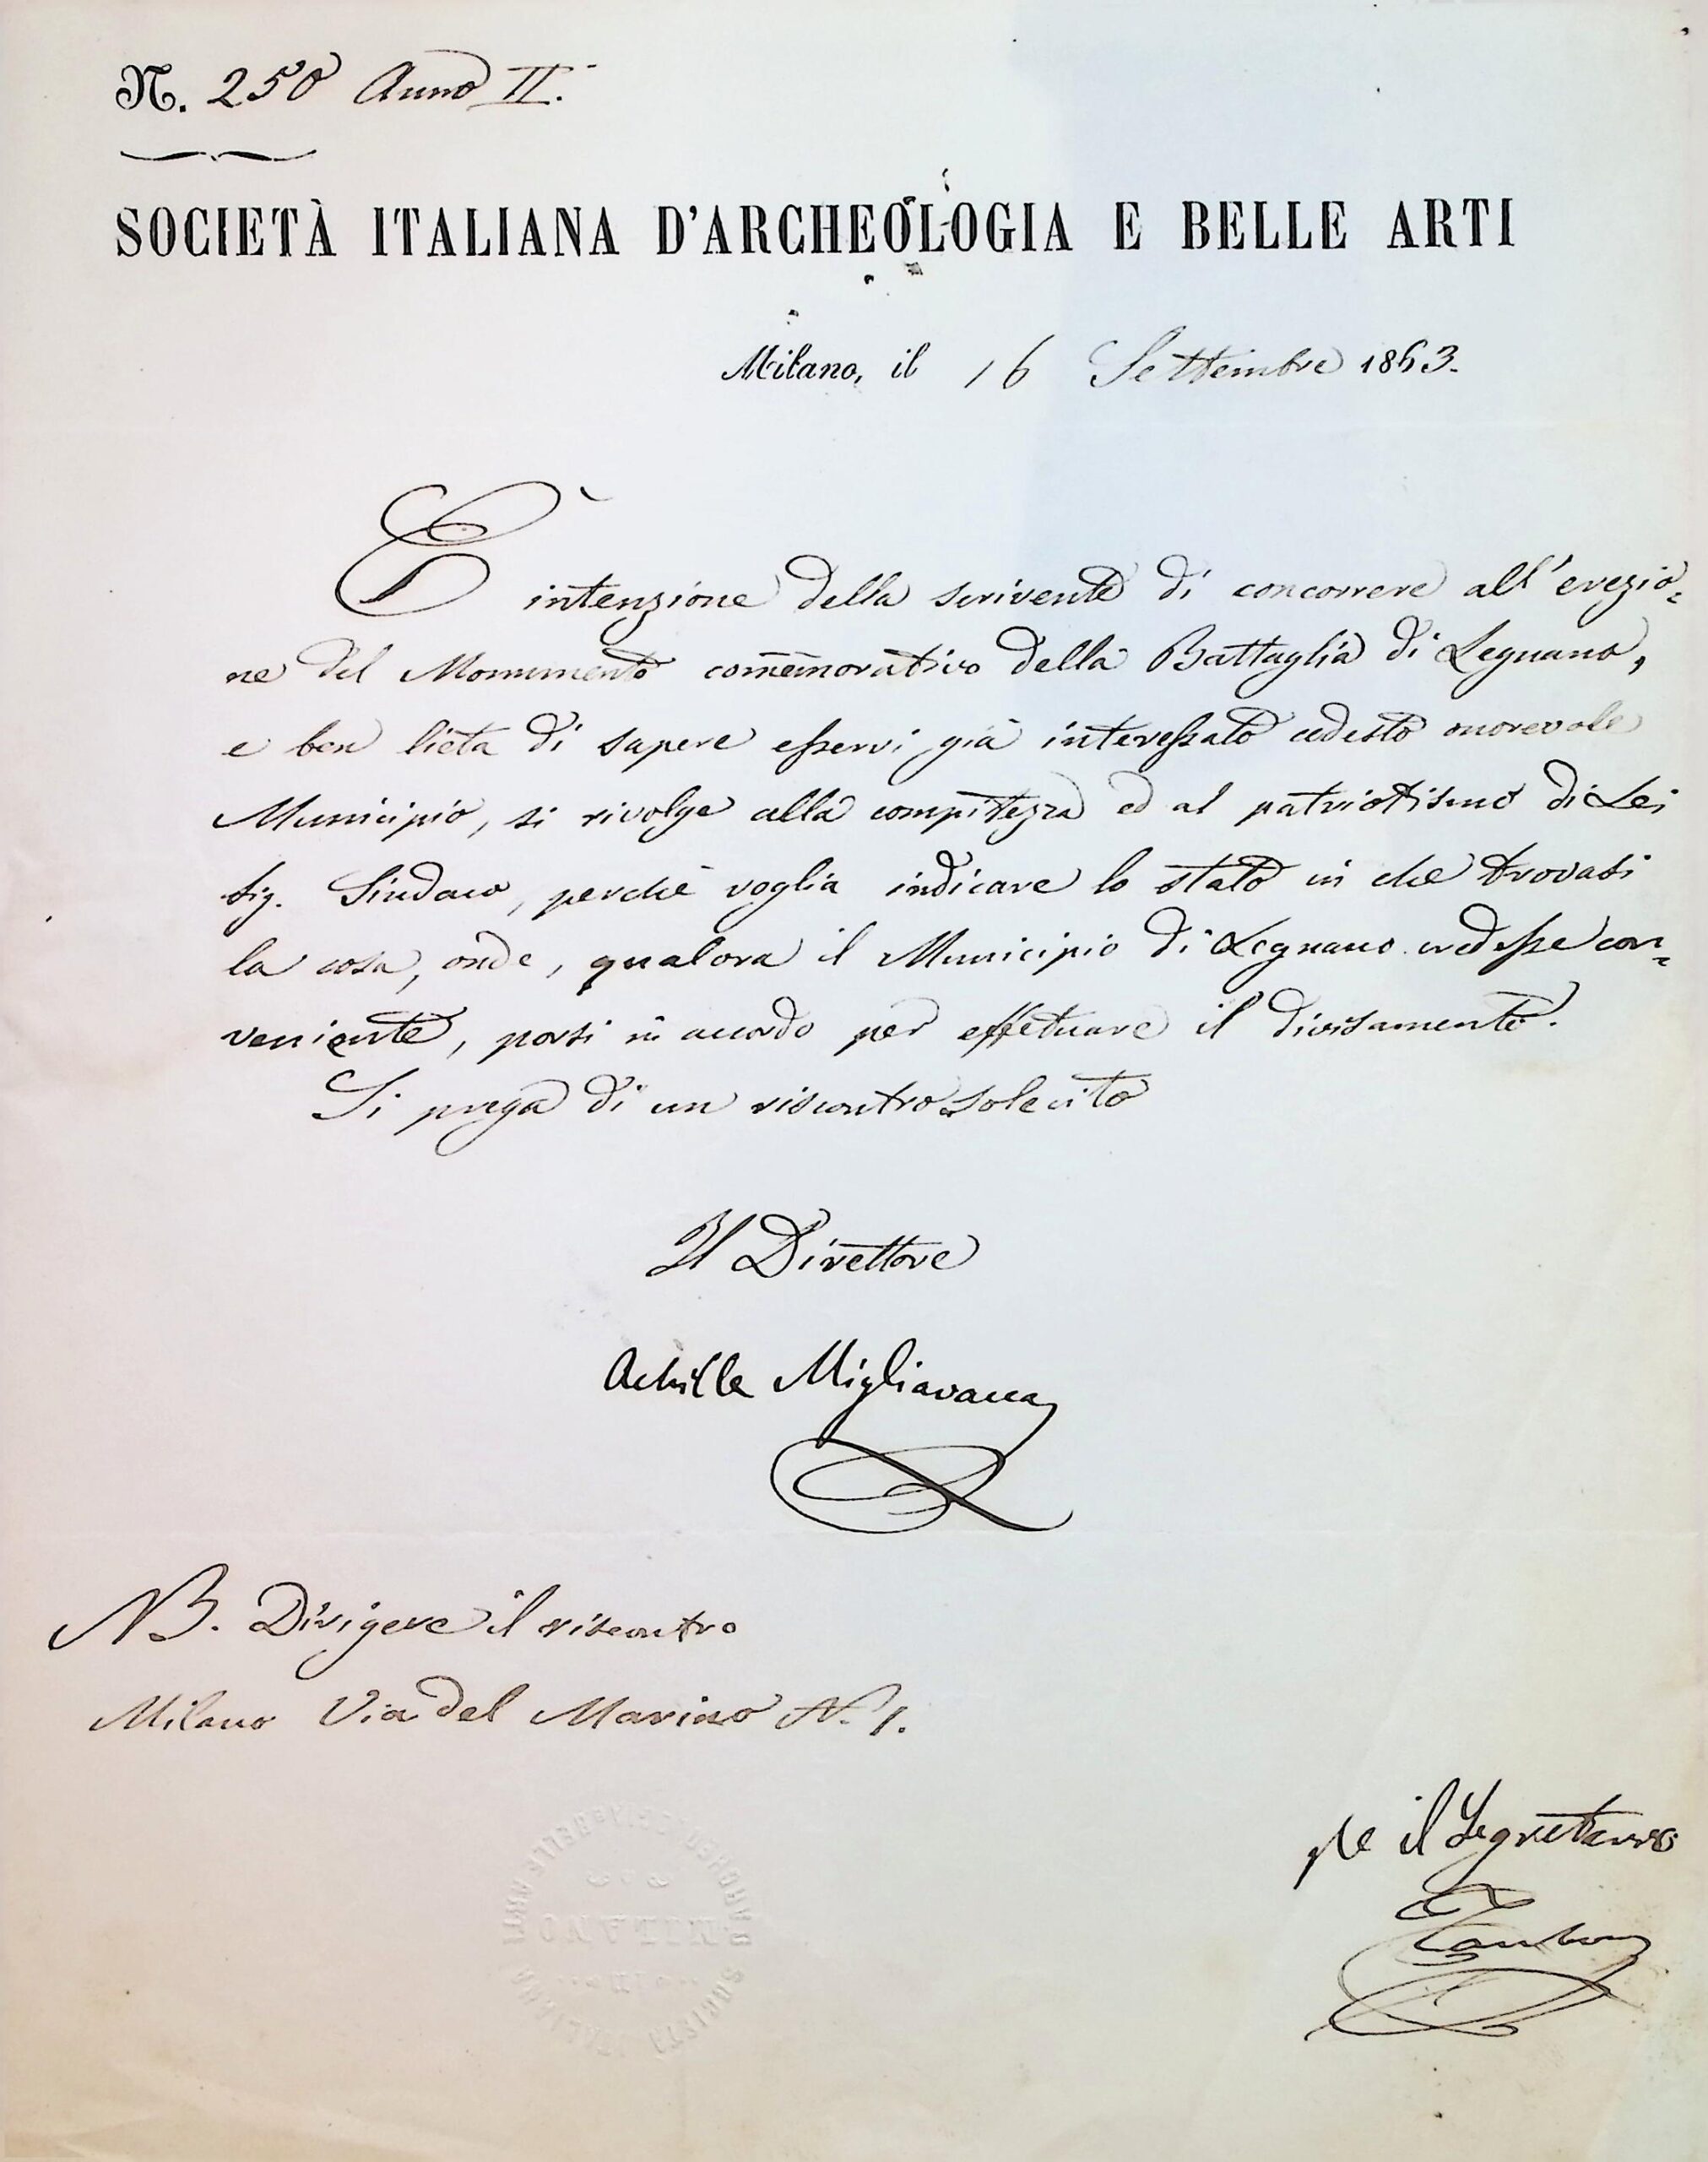 N. 250 Anno II.
SOCIETÀ ITALIANA D'ARCHEOLOGIA E BELLE ARTI
Milano, il 16 Settembre 1863.
È intenzione della scrivente di concorrere all'erezio=
ne del Monumento com̄emorativo della Battaglia di Legnano,
e ben lieta di sapere esservi già interessato codesto onorevole
Municipio, si rivolge alla compitezza ed al patriotismo di Lei
Sig. Sindaco, perchè voglia indicare lo stato in che trovasi
la cosa, onde, qualora il Municipio di Legnano credesse con=
veniente, porsi in accordo per effetuare il divisamento.
Si prega di un riscontro solecito
Il Direttore
Achille Migliavacca
NB. Dirigere il riscontro
Milano Via del Marino N. 1.
pe il Segretario
MILANO
SOCIETÀ ITALIANA